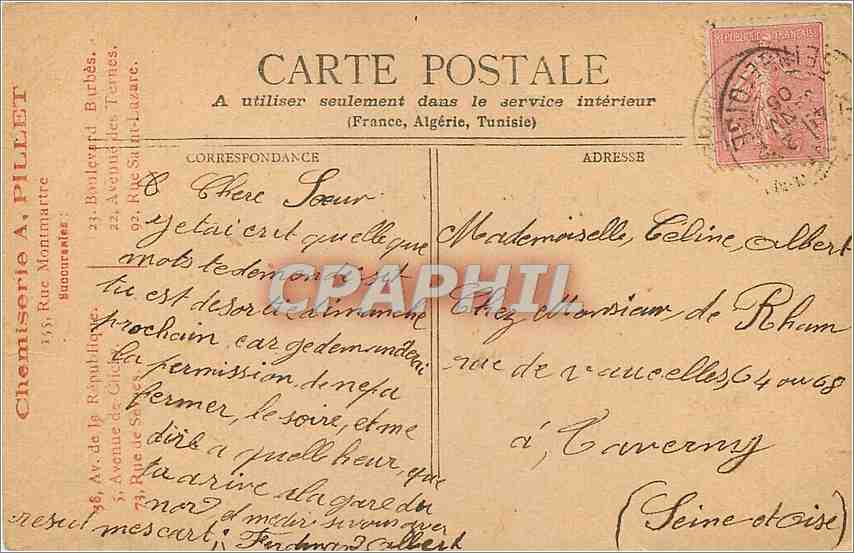 CARTE POSTALE
A utiliser seulement dans le service intérieur
(France, Algérie, Tunisie)
CORRESPONDANCE
ADRESSE
RÉPUBLIQUE FRANÇAISE
Chemiserie A. PILLET
155, Rue Montmartre
Succursales:
23, Boulevard Barbès.
22, Avenue des Ternes.
92, Rue Saint-Lazare.
38, Av. de la République.
5, Avenue de Clichy.
73, Rue de Sèvres.
Chere Sœur
je tai ecrit quelleque
mots te demandé sit
tu est de sortie dimanche
prochain, car je demanderai
la permission, de ne pa
fermer, le soire, et me
dire a quelle heur, que
tu arive a la gare du
nord et me dir si vous avez
resu mes cart;
Ferdinand Albert
Mademoiselle, Celine, Albert
Chez Monsieur de Rham
rue de Vaucelles, 64 ou 68
à, Taverny
(Seine et Oise)
CPAPHIL